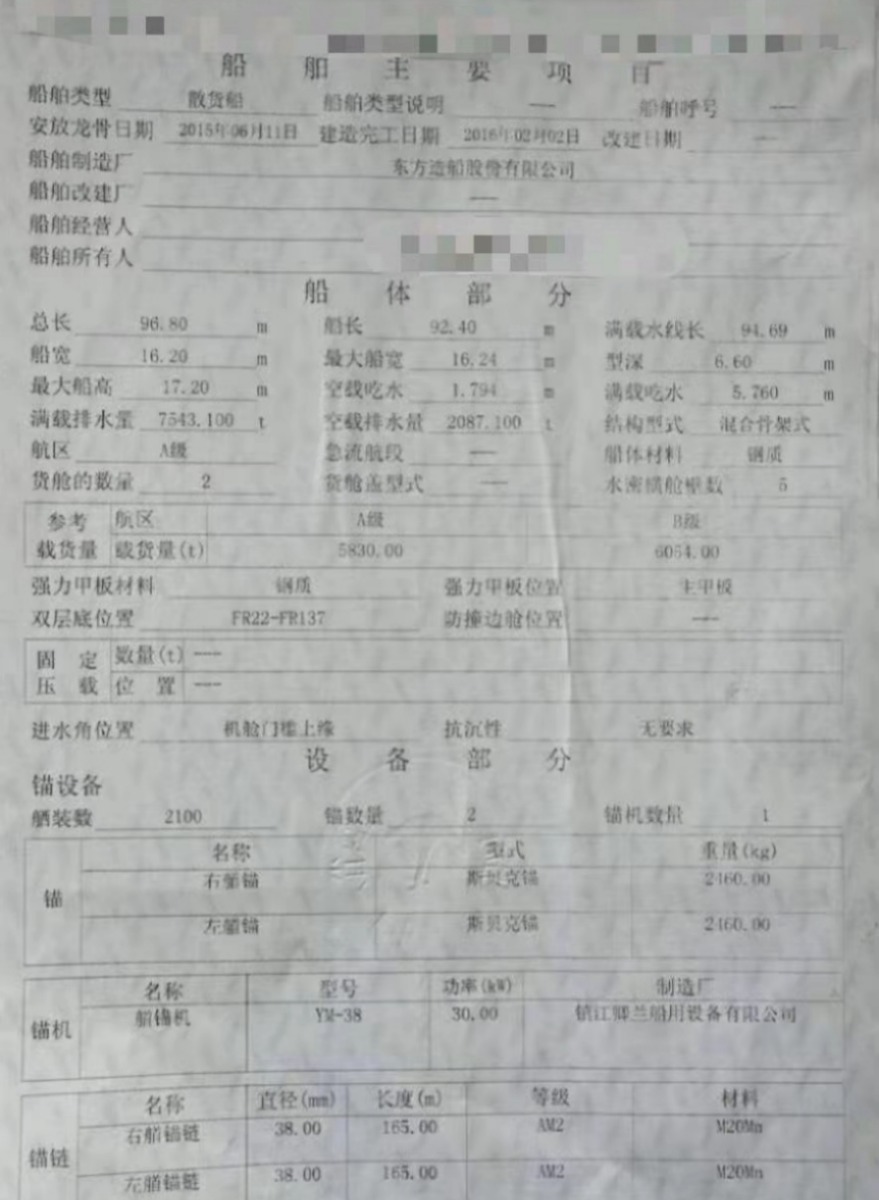 船舶主要项目
船舶类型 散货船 船舶类型说明 — 船舶呼号 —
安放龙骨日期 2015年06月11日 建造完工日期 2016年02月02日 改建日期 —
船舶制造厂 东方造船股份有限公司
船舶改建厂 —
船舶经营人
船舶所有人
船体部分
总长 96.80 m 船长 92.40 m 满载水线长 94.69 m
船宽 16.20 m 最大船宽 16.24 m 型深 6.60 m
最大船高 17.20 m 空载吃水 1.794 m 满载吃水 5.760 m
满载排水量 7543.100 t 空载排水量 2087.100 t 结构型式 混合骨架式
航区 A级 急流航段 — 船体材料 钢质
货舱的数量 2 货舱盖型式 — 水密横舱壁数 5
参考 航区 A级 B级
载货量 载货量(t) 5830.00 6054.00
强力甲板材料 钢质 强力甲板位置 主甲板
双层底位置 FR22-FR137 防撞边舱位置 —
固定 数量(t) —
压载 位置 —
进水角位置 机舱门槛上缘 抗沉性 无要求
设备部分
锚设备
舾装数 2100 锚数量 2 锚机数量 1
名称 型式 重量(kg)
右艏锚 斯贝克锚 2460.00
锚
左艏锚 斯贝克锚 2460.00
名称 型号 功率(kW) 制造厂
锚机 艏锚机 YM-38 30.00 镇江卿兰船用设备有限公司
名称 直径(mm) 长度(m) 等级 材料
右艏锚链 38.00 165.00 AM2 M20Mn
锚链
左艏锚链 38.00 165.00 AM2 M20Mn